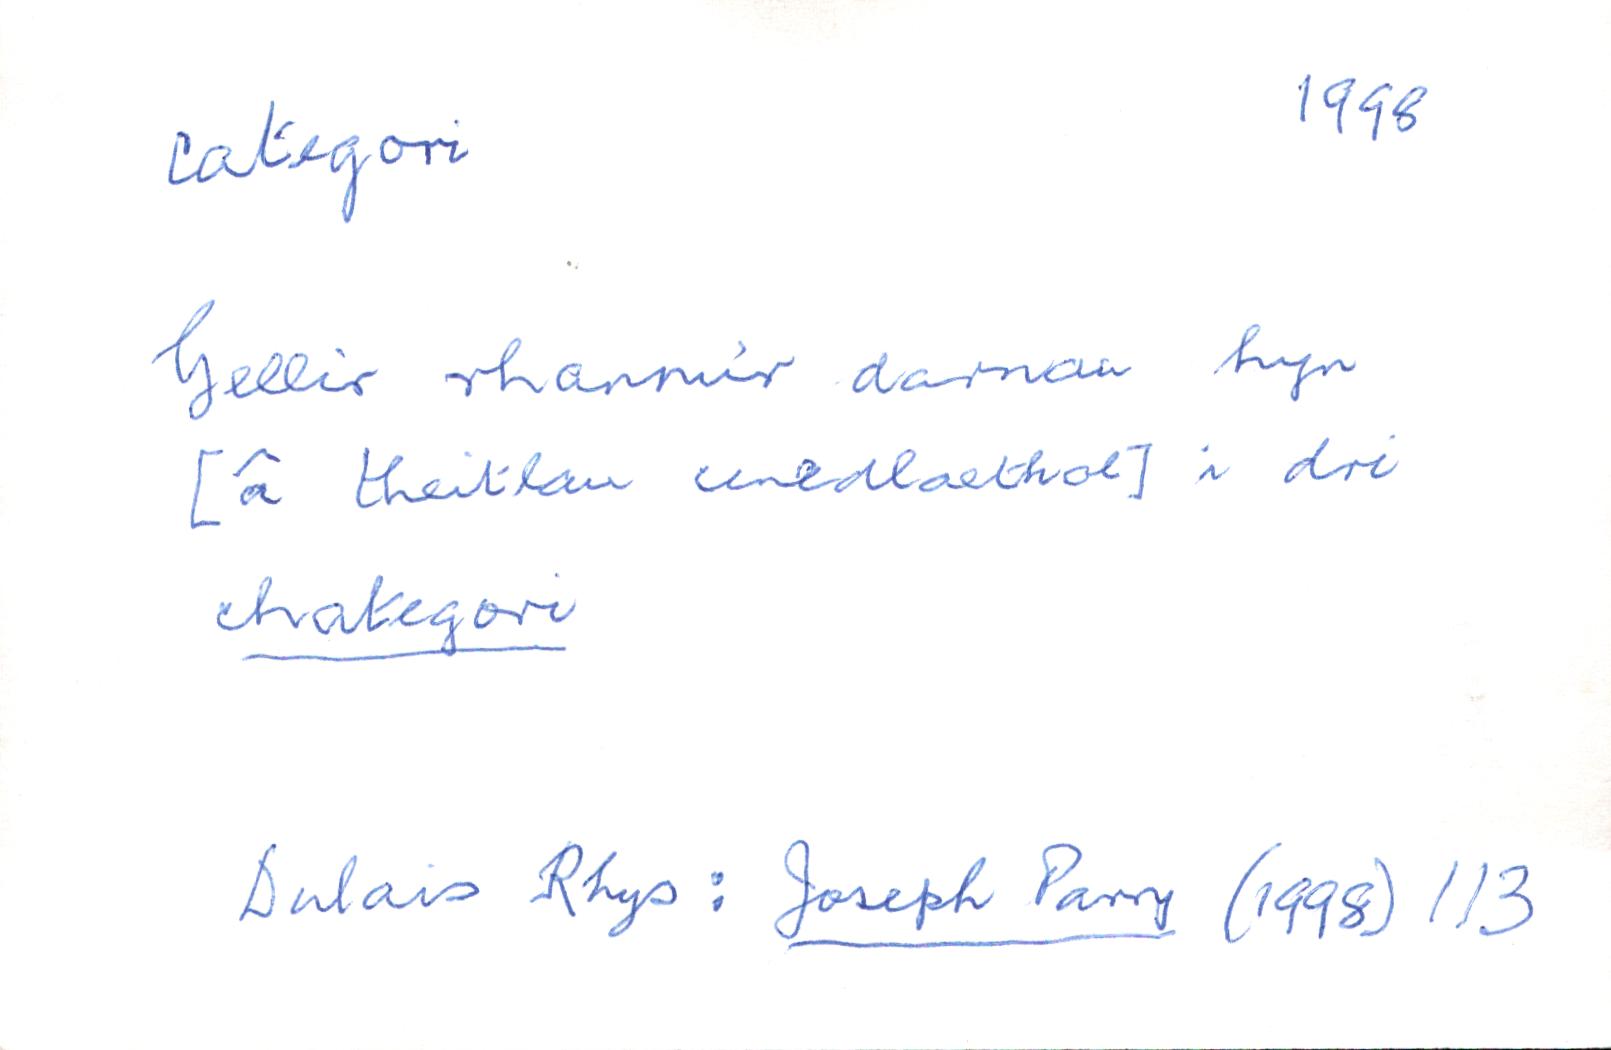 categori 1998
Gellir rhannu'r darnau hyn
[â theitlau cenedlaethol] i dri
chategori
Dulais Rhys: Joseph Parry (1998) 113